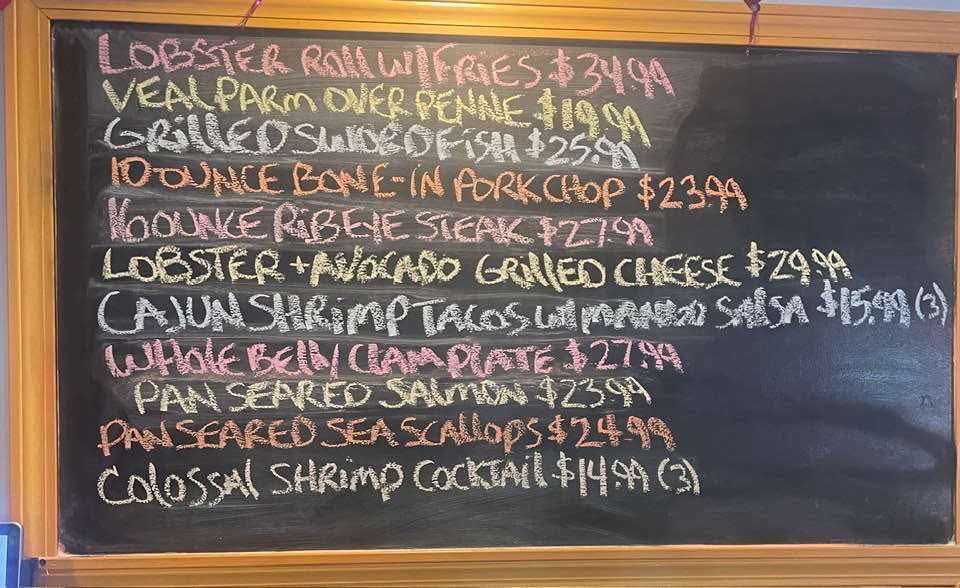 LOBSTER ROLL W/FRIES $34.99
VEAL PARM OVER PENNE $19.99
GRILLED SWORDFISH $25.99
10-OUNCE BONE-IN PORK CHOP $23.99
16 OUNCE RIBEYE STEAK $27.99
LOBSTER + AVOCADO GRILLED CHEESE $29.99
CAJUN SHRIMP TACOS W/MANGO SALSA $15.99 (3)
WHOLE BELLY CLAM PLATE $27.99
PAN SEARED SALMON $23.99
PAN SEARED SEA SCALLOPS $24.99
COLOSSAL SHRIMP COCKTAIL $14.99 (3)